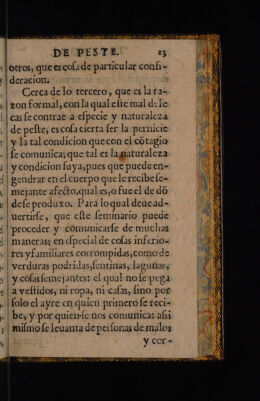 DE PESTE. 23
otros, que es cosa de particular consi-
deracion.
Cerca de lo tercero, que es la ra-
zon formal, con la qual este mal de le
cas se contrae a especie y naturaleza
de peste, es cosa cierta ser la pernicie
y la tal condicion que con el cōtagio
se comunica; que tal es la naturaleza
y condicion suya, pues que puede en-
gendrar en el cuerpo que le recibe se-
mejante afecto, qual es, o fue el de dō
de se produxo. Para lo qual deue ad-
uertirse, que este seminario puede
proceder y comunicarse de muchas
maneras; en especial de cosas inferio-
res y familiares corrompidas, como de
verduras podridas, sentinas, lagunas,
y cosas semejantes: el qual no se pega
a vestidos, ni ropa, ni casas, sino por
solo el ayre en quien primero se reci-
be, y por quien se nos comunica: assi
mismo se leuanta de personas de malos
y cor-